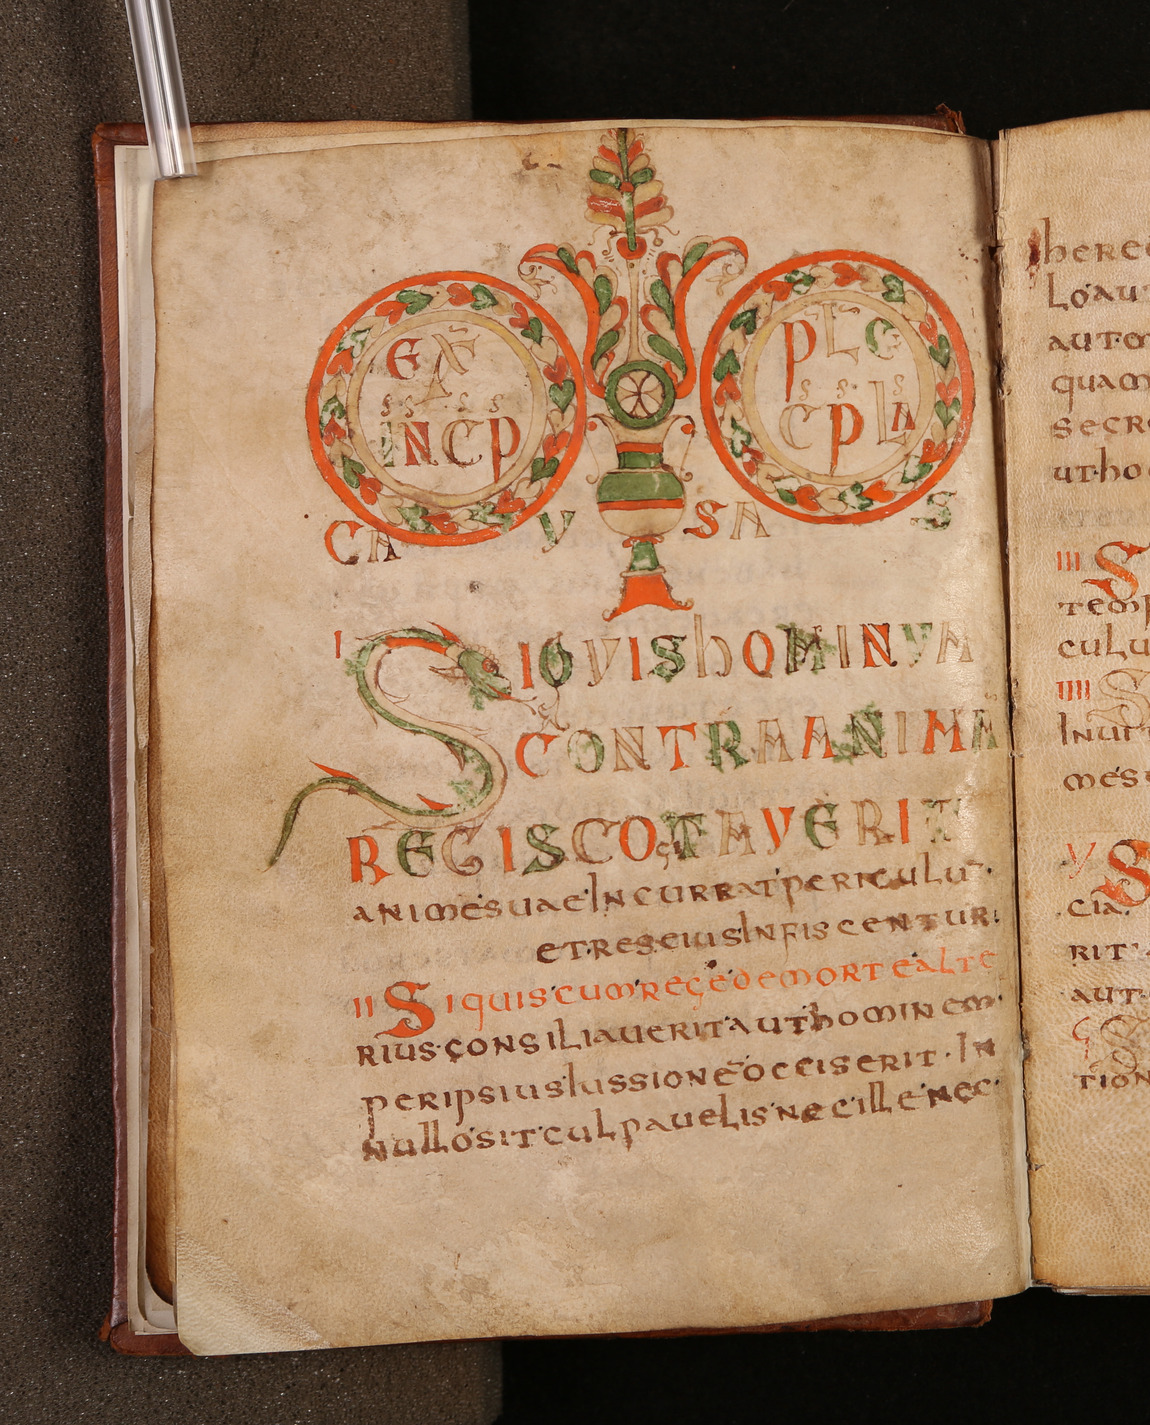 EX PLC
A
INCP CPLA
CA Y SA S
I SIQVISHOMINVM
CONTRAANIMA
REGISCOGTAVERIT
animesuaeincurratpericulu·
etregeiuisinfiscentur:
II Siquis'cum'regedemorteAlte
rius·consiliauerit'authominem·
peripsiusiussioneocciserit·in
nullosit'culpauelis'necille'nec·
hereg
Lo'au
aut·o
quam
secr
ut·ho
III S
temp
culu
IIII S
Inuit
mes'
V S
·cia·
rit'
aut·
tion